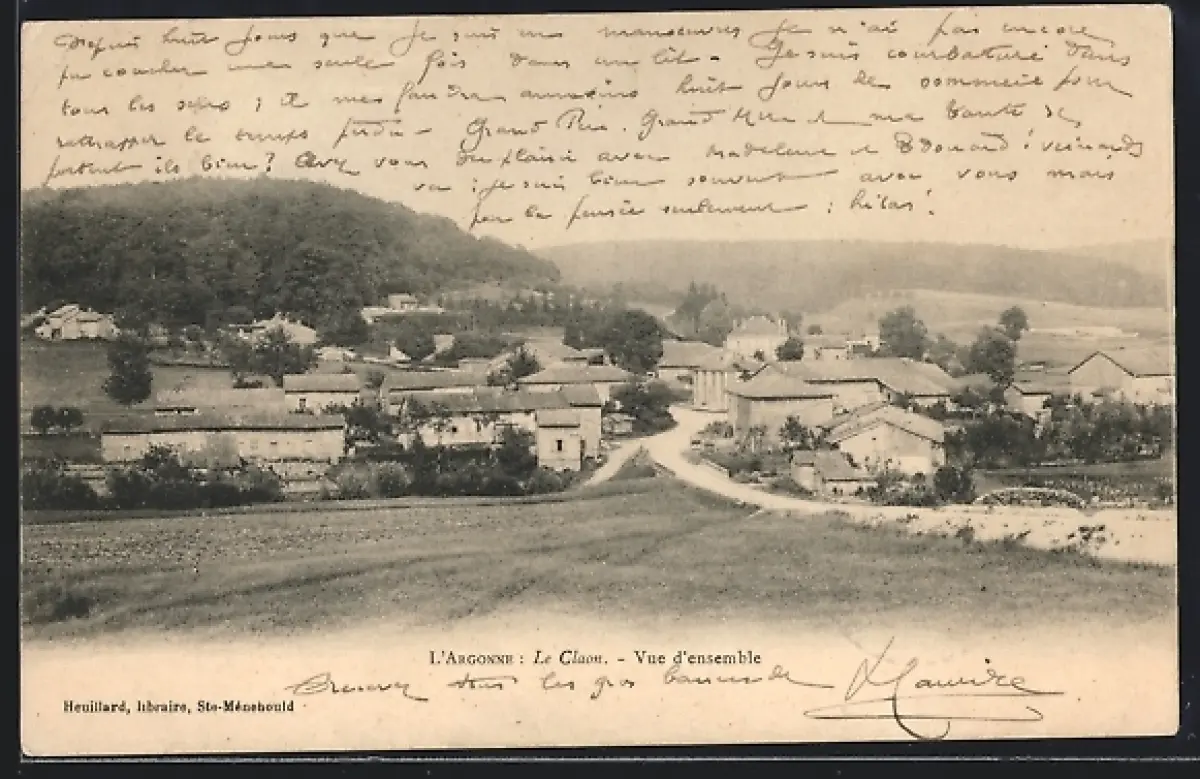 Depuis huit jours que je suis en manoeuvres je n'ai pas encore
pu coucher une seule fois dans un lit - Je suis courbaturé dans
tous les sens ; il me faudra au moins huit jours de sommeil pour
rattrapper le temps perdu - Grand Père, Grand Mère et ma tante se
portent ils bien? Avez vous du plaisir avec Madeleine et Edouard!
va ; je suis bien souvent avec vous mais
par la pensée seulement ; hélas!
L'ARGONNE : Le Claon. - Vue d'ensemble
Recevez tous les gros baisers de Maurice
Heuillard, libraire, Ste-Ménehould